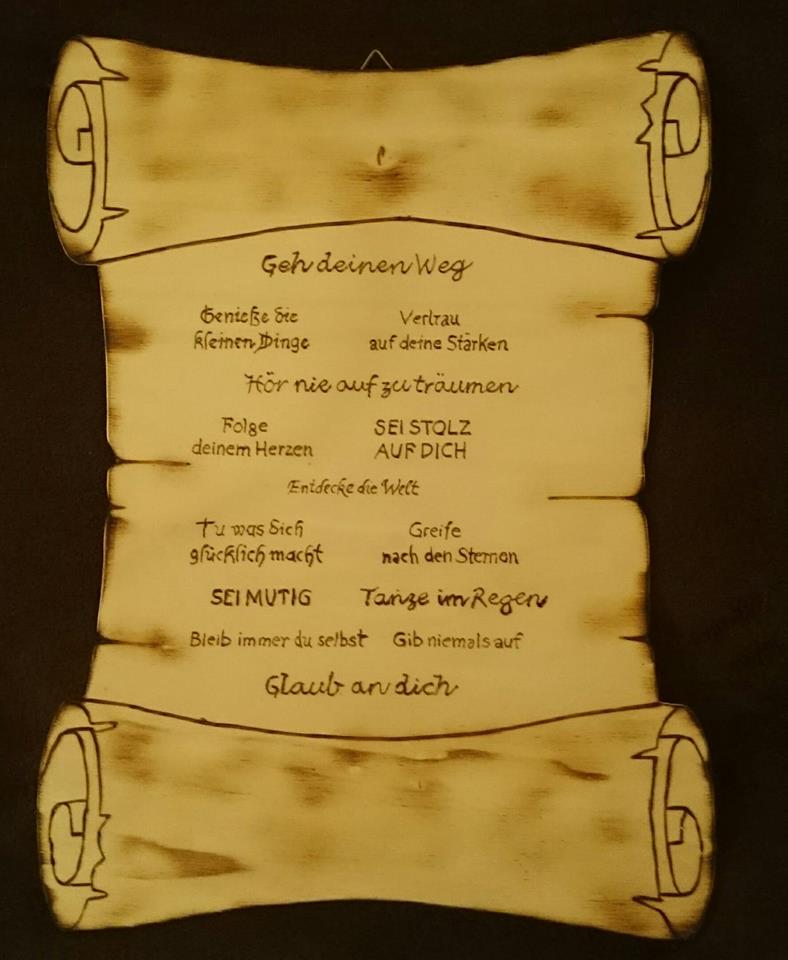 Geh deinen Weg
Genieße die
kleinen Dinge
Vertrau
auf deine Stärken
Hör nie auf zu träumen
Folge
deinem Herzen
SEI STOLZ
AUF DICH
Entdecke die Welt
Tu was dich
glücklich macht
Greife
nach den Sternen
SEI MUTIG
Tanze im Regen
Bleib immer du selbst
Gib niemals auf
Glaub an dich